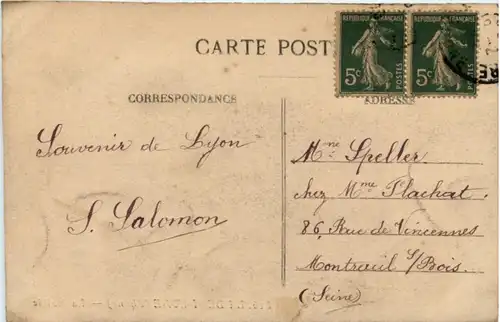 CARTE POST
REPUBLIQUE FRANÇAISE
5c
POSTES
REPUBLIQUE FRANÇAISE
5c
POSTES
CORRESPONDANCE
ADRESSE
Souvenir de Lyon
S. Salomon
Mme Speller
chez Mme Flachat.
86, Rue de Vincennes
Montreuil s/Bois.
(Seine)